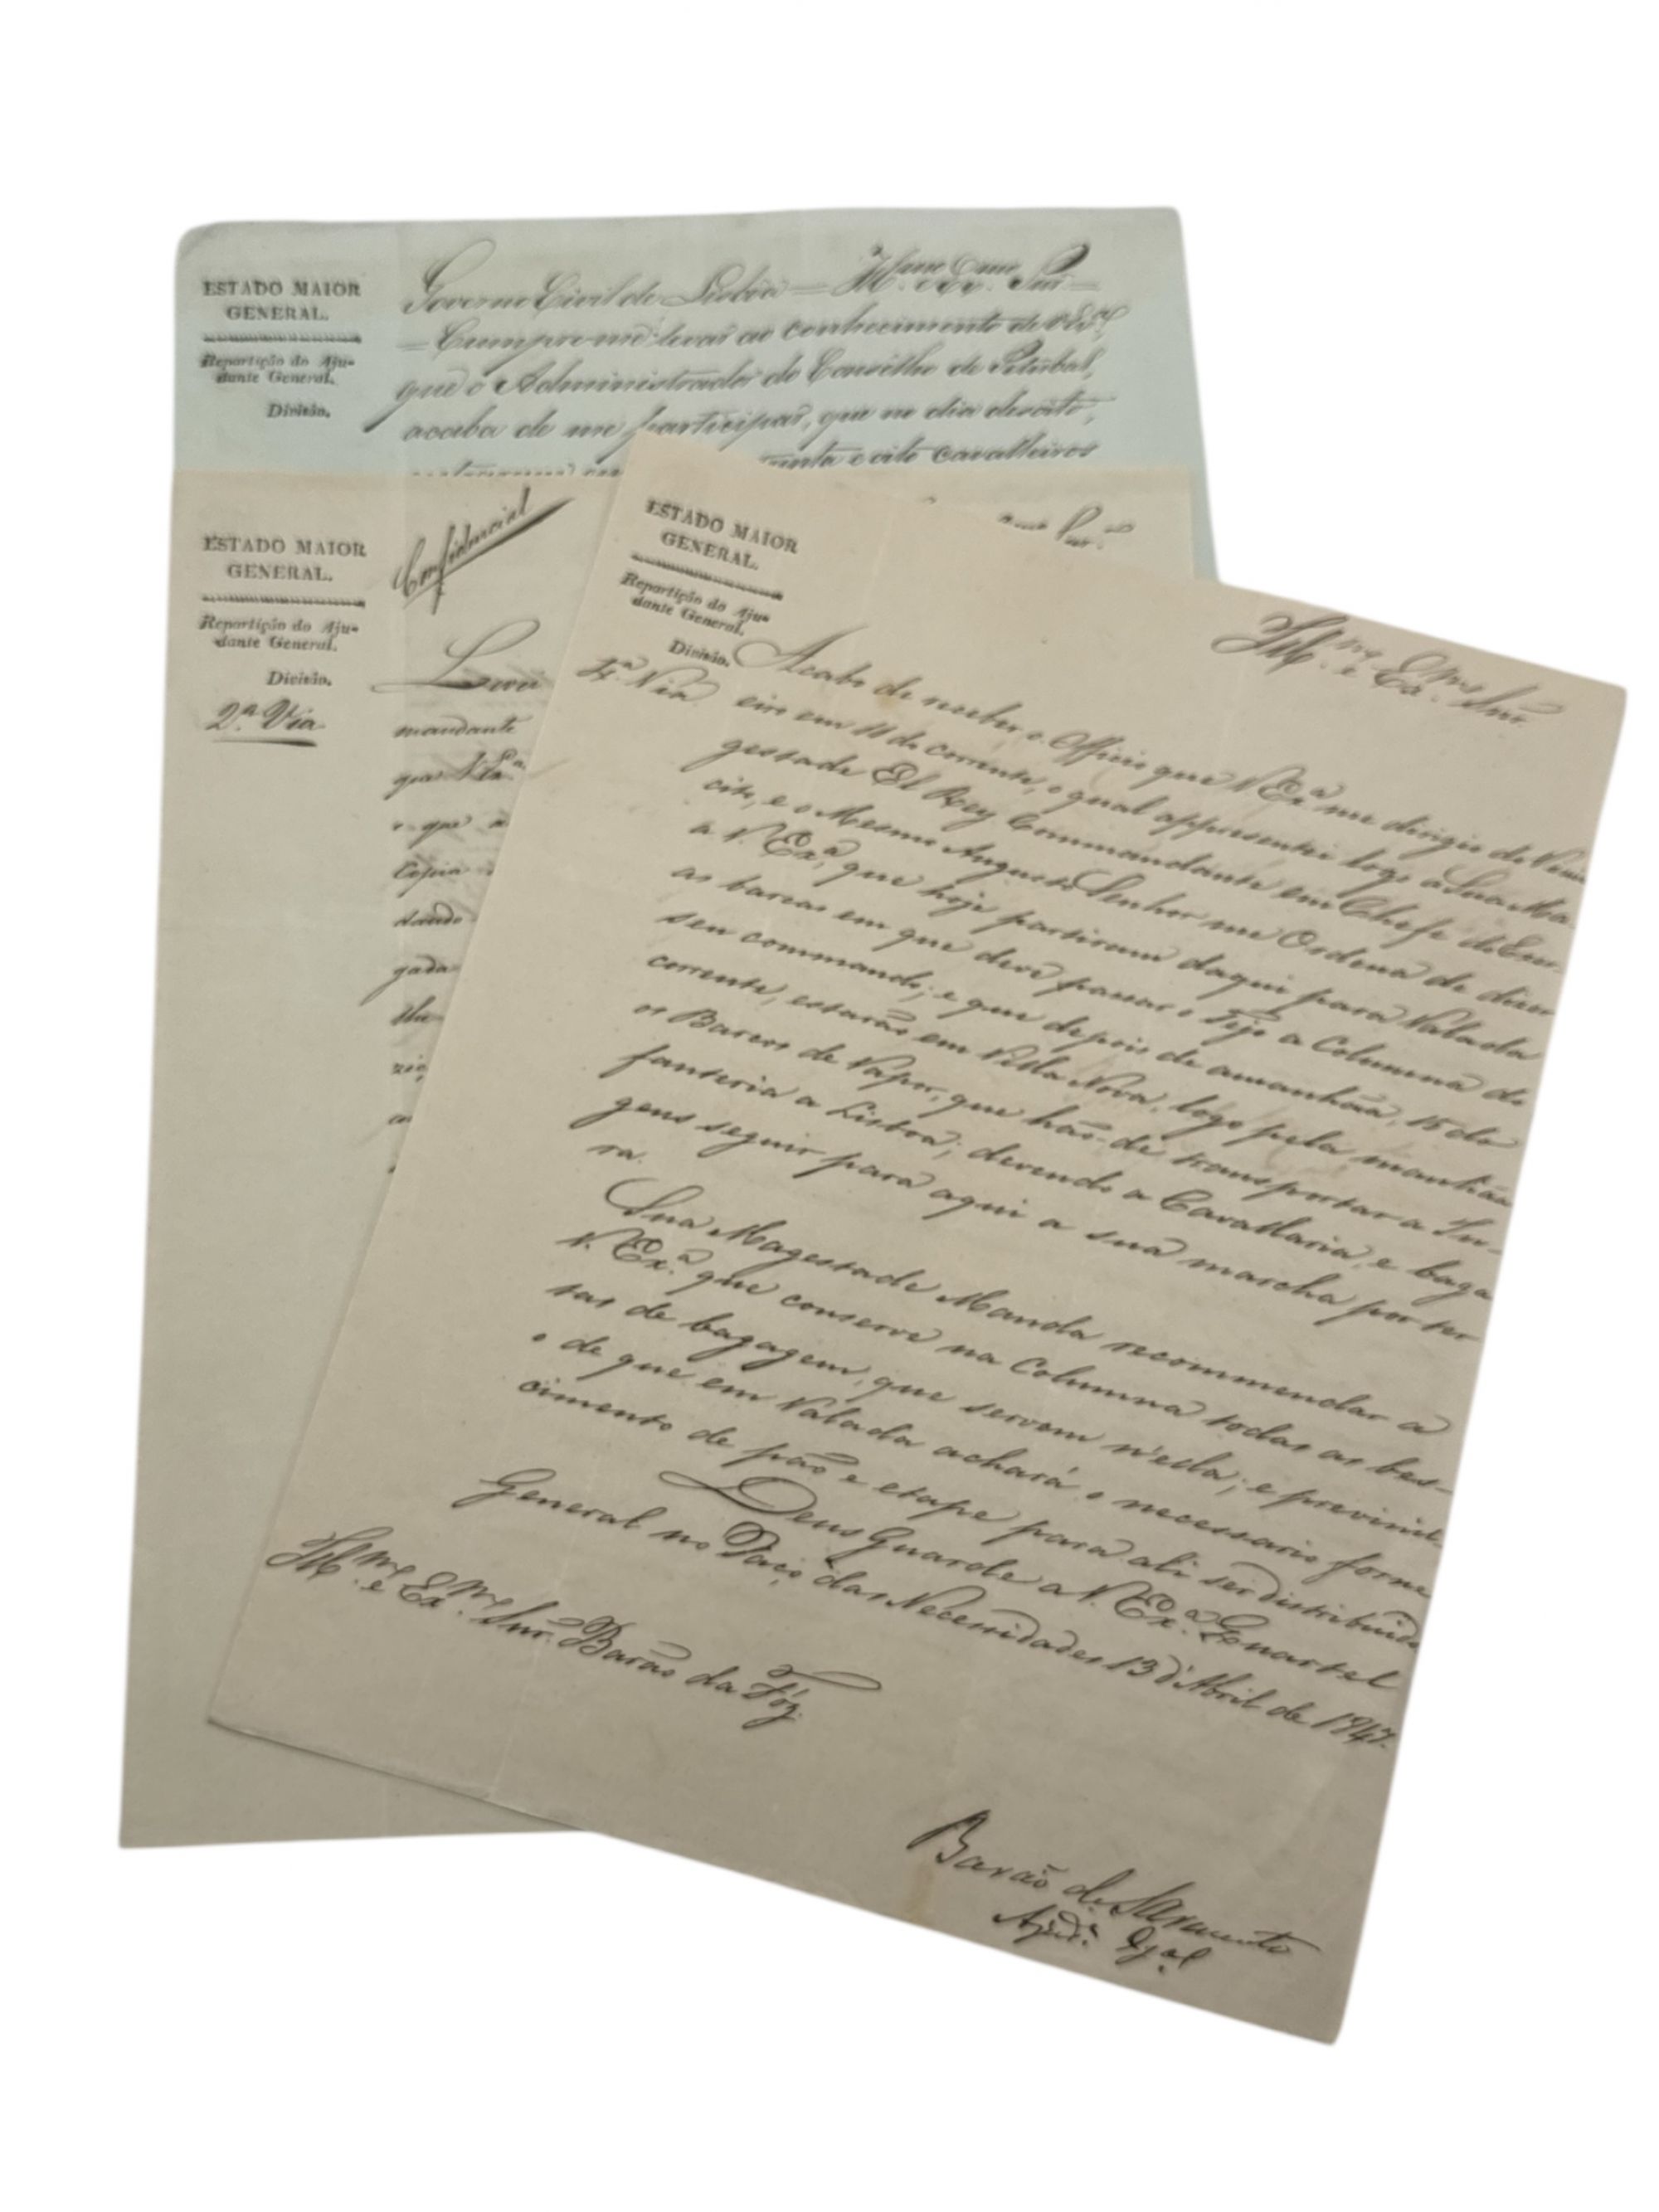 ESTADO MAIOR
GENERAL.
Repartição do Aju-
dante General.
Divisão.
Governo Civil de Lisboa = Ill.mo Exmo Snr =
= Cumpre-me levar ao conhecimento de V Ex.ª
que o Administrador do Conselho de Setubal,
acaba de me participar, que no dia dezoito,
trinta e oito cavalleiros
ESTADO MAIOR
GENERAL.
Repartição do Aju-
dante General.
Divisão.
2.ª Via
Confidencial
mandante
que
e que a
Copia
gada
ESTADO MAIOR
GENERAL.
Repartição do Aju-
dante General.
Divisão.
1.ª Via
Ill.mo e Ex.mo Snr.
Acabo de receber o Officio que V. Ex.ª me dirigio de Peni-
eiro em 11 do corrente, o qual appresentei logo a Sua Ma-
gestade El Rey Commandante em Chefe do Exer-
cito, e o Mesmo Augusto Senhor me Ordena de dizer
a V. Ex.ª, que hoje partiram daqui para Valada
as barcas em que deve passar o Tejo a Columna do
seu commando; e que depois de amanhãa, 15 do
corrente, estarão em Villa Nova, logo pela manhãa
os Barcos de Vapor, que hão-de transportar a In-
fanteria a Lisboa; devendo a Cavallaria, e baga
gens seguir para aqui a sua marcha por ter
ra.
Sua Magestade Manda recommendar a
V. Ex.ª que conserve na Columna todas as bes-
tas de bagagem, que servem n'ella; e previnil-
o de que em Valada achará o necessario forne
cimento de pão e etape para ali ser distribuido
Deus Guarde a V. Ex.ª Quartel
General no Paço das Necessidades 13 d'Abril de 1847.
Ill.mo e Ex.mo Snr. Barão da Fóz.
Barão de Sarmento
Ajud.e G.al